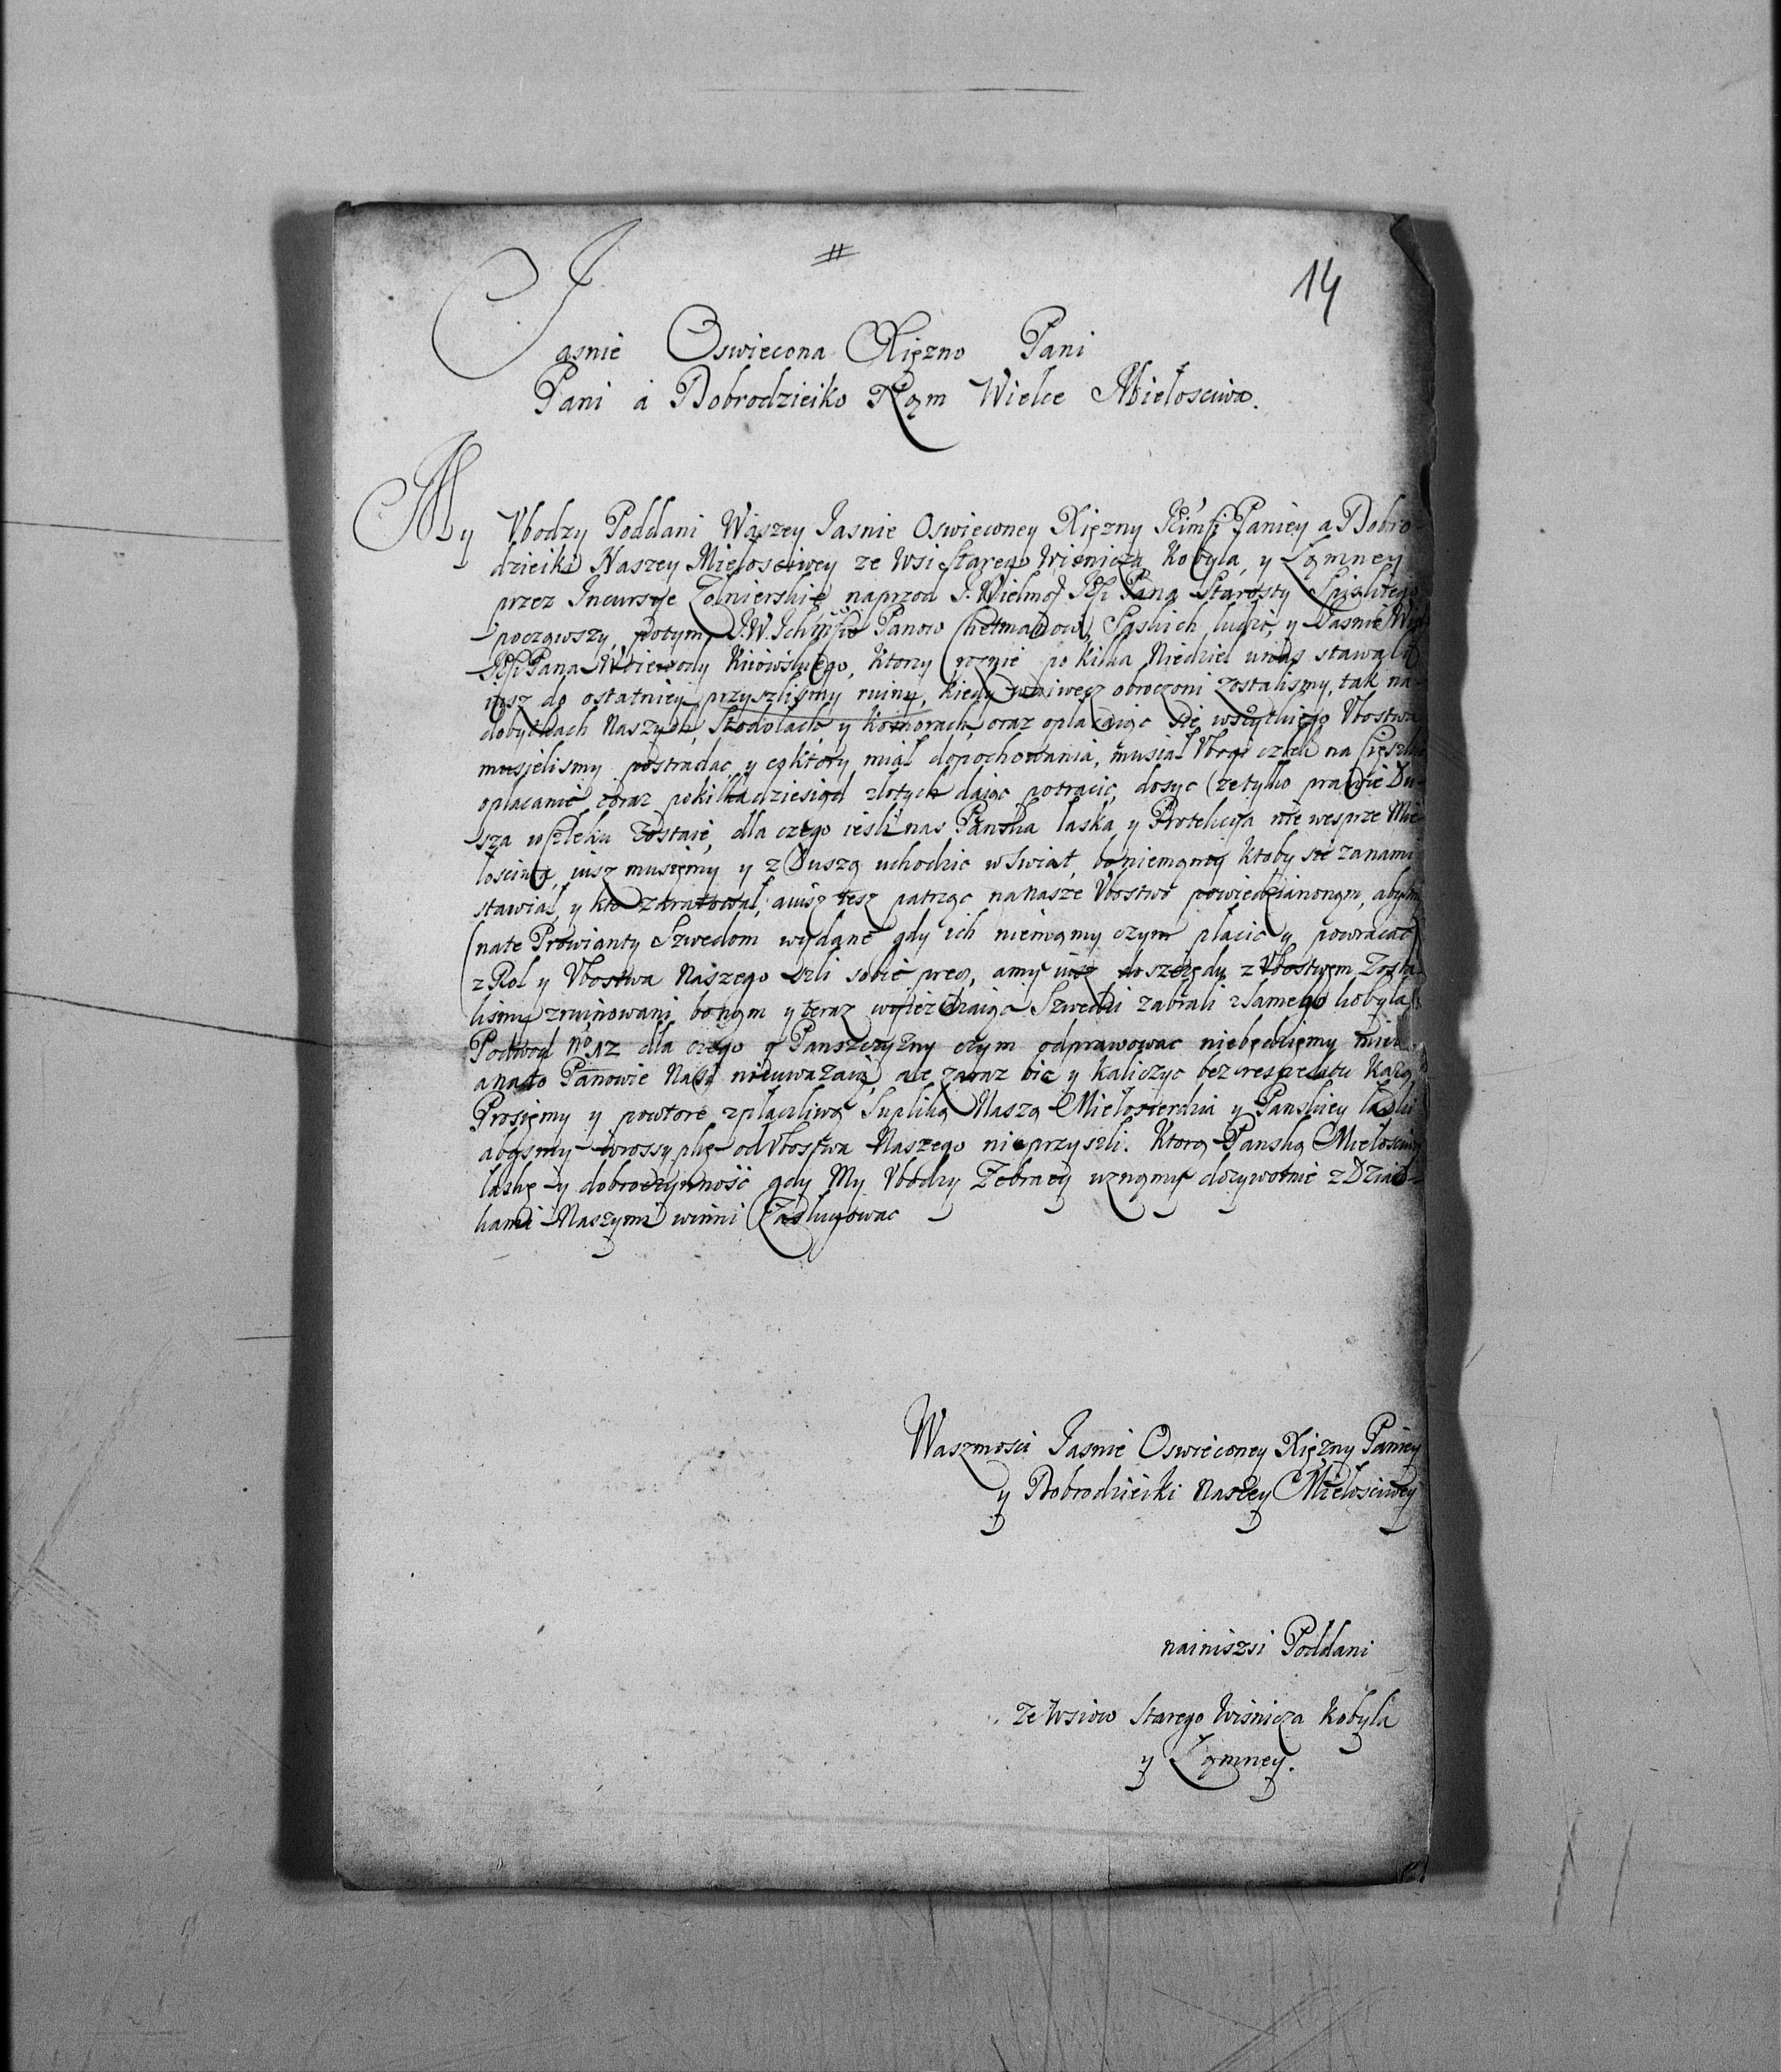 #
14
Jasnie Oswiecona Xięzno Pani
Pani á Dobrodzieiko Nąm Wielce Miełosciwa.
My Vbodzy Poddani Waszey Jasnie Oswieconey Xięzny Paniey a Dobro-
dzieiki Naszey Miełosciwey ze Wsi Starego Wisnicza, Kobyla, y Łąmney
przez Incursye Zołnierskie naprzod J. Wielmoz Pana Starosty
począwszy, potym J.W. Panow Chetmanow, Sąskich ludzi, y Jasnie Wiel
Pana Woiewody Kiiowskiego, ktorzy roznie po kilka Niedziel unas stawali
iusz do ostatniey przyszlismy ruiny, kiedy wniwecz obroczoni zostalismy, tak na-
dobytkach Naszych, Stodołach, y komorach, oraz opłacaiąc się wszytkiego Vbostwa
musielismy postradac, y coktory miał dopochowania, musiał Vbogi człek na
opłacanie coraz pokilkadziesiąd złotych daiąc potracic, dosyc ze tylko prawie Du-
sza wczleku zostaie, dla czego iesli nas Panska łaska y Protekcyia nie wesprze Mie-
łosciwa, iusz musięmy y z Duszą uchodzic w Swiat, bo niemąmy ktoby się zanami
stawiał, y kto zdratował, aiusz tesz patrząc nanasze Vbostwo powiedzianonąm, abysmy
nate Prowianty Szwedom wydane gdy ich niemąmy czym płacic y powracac
z Rol y Vbostwa Naszego szli sobie precz, amy iusz doszczędu z Vbostwem Zosta-
lismy zruinowani, bonąm y teraz wyiezdzaiąc Szwedzi zabrali zSamego kobyla
Podwod Nº 12 dla czego y Panszczyzny czym odprawowac niebędzięmy miel
anato Panowie Nasi nieuwazaią, ale zaraz bic y kaliczyc bez respektu Kazą
Prosięmy y powtore zpłacliwą Supliką Naszą Miełosierdzia y Panskiey łaski
abysmy wrossypkę od Vbostwa Naszego nieprzyszli. Ktorą Panską Miełosciwą
łaskę y dobroczynność gdy My Vbodzy Zebracy uznąmy dozywotnie z Dziad-
kami Naszymi winni Zasługowac
Waszmosci Jasnie Oswieconey Xięzny Paniey
y Dobrodzieiki Naszey Miełosciwey
nainiszsi Poddani
Ze Wsiow Starego Wisnicza Kobyla
y Łąmney.